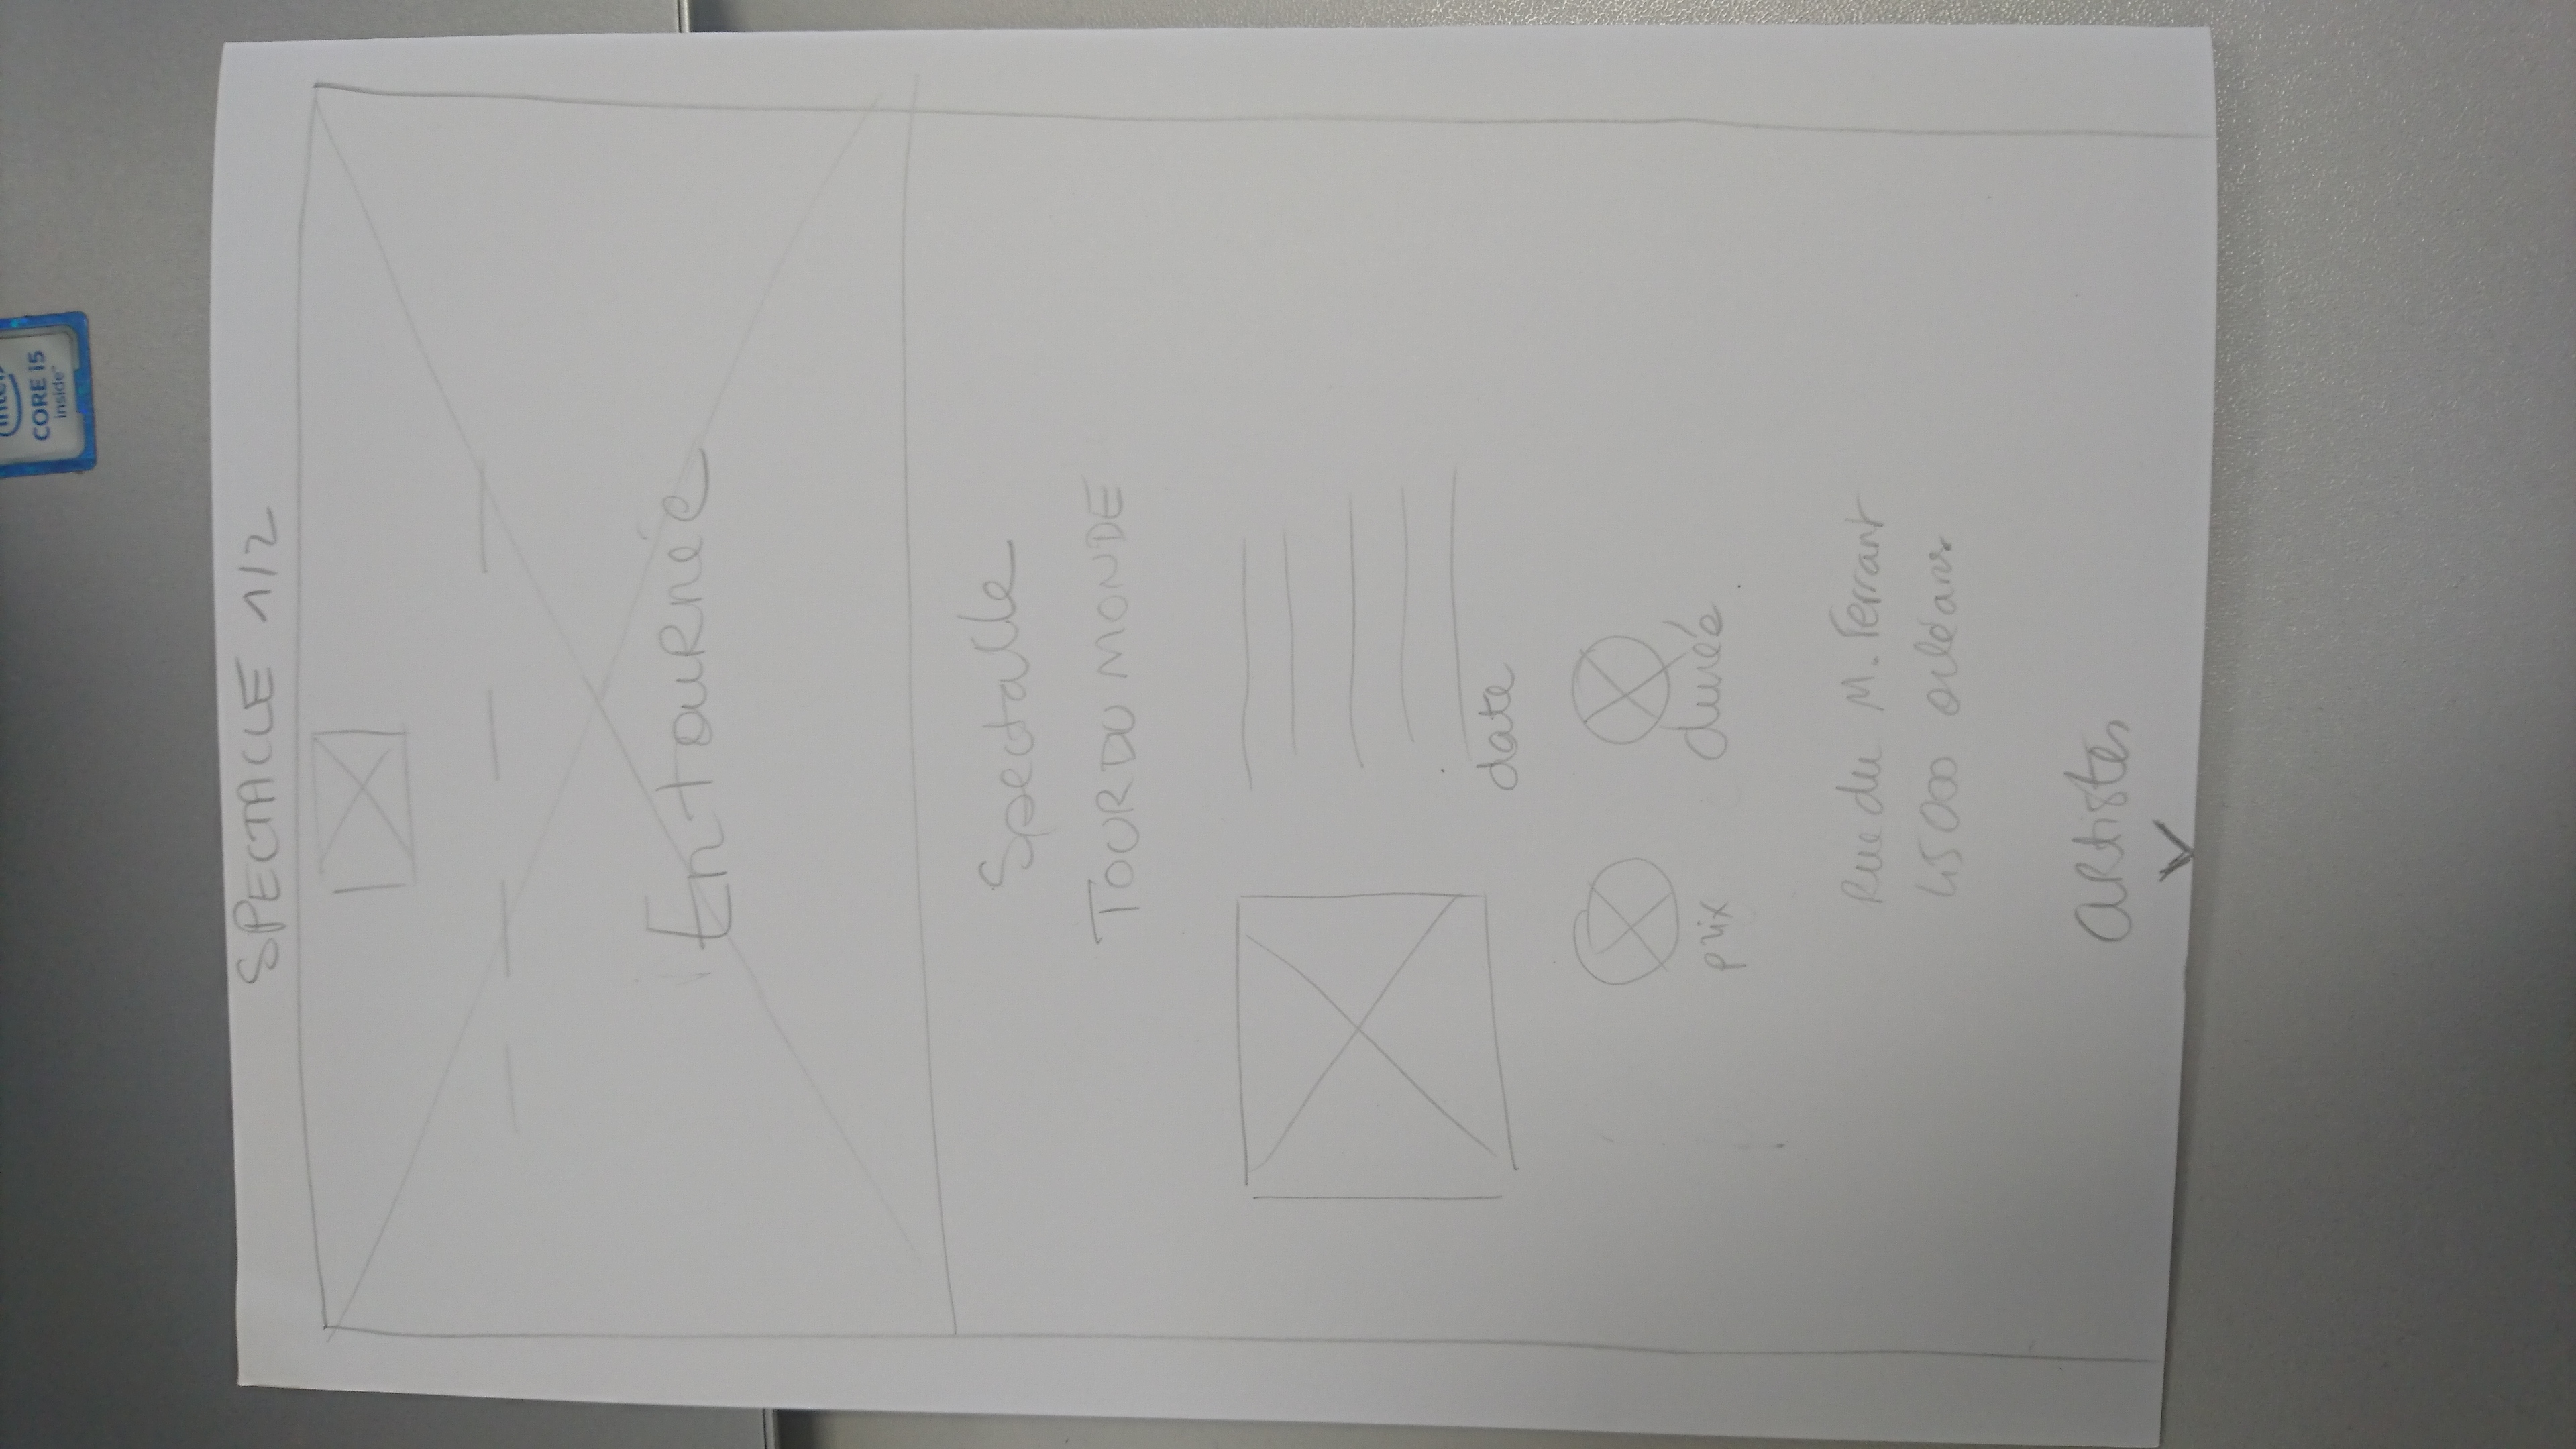 intel
CORE i5
inside™
SPECTACLE 1/2
En tournée
Spectacle
TOUR DU MONDE
date
prix
durée
Rue du M. Ferrant
45000 orléans
artistes